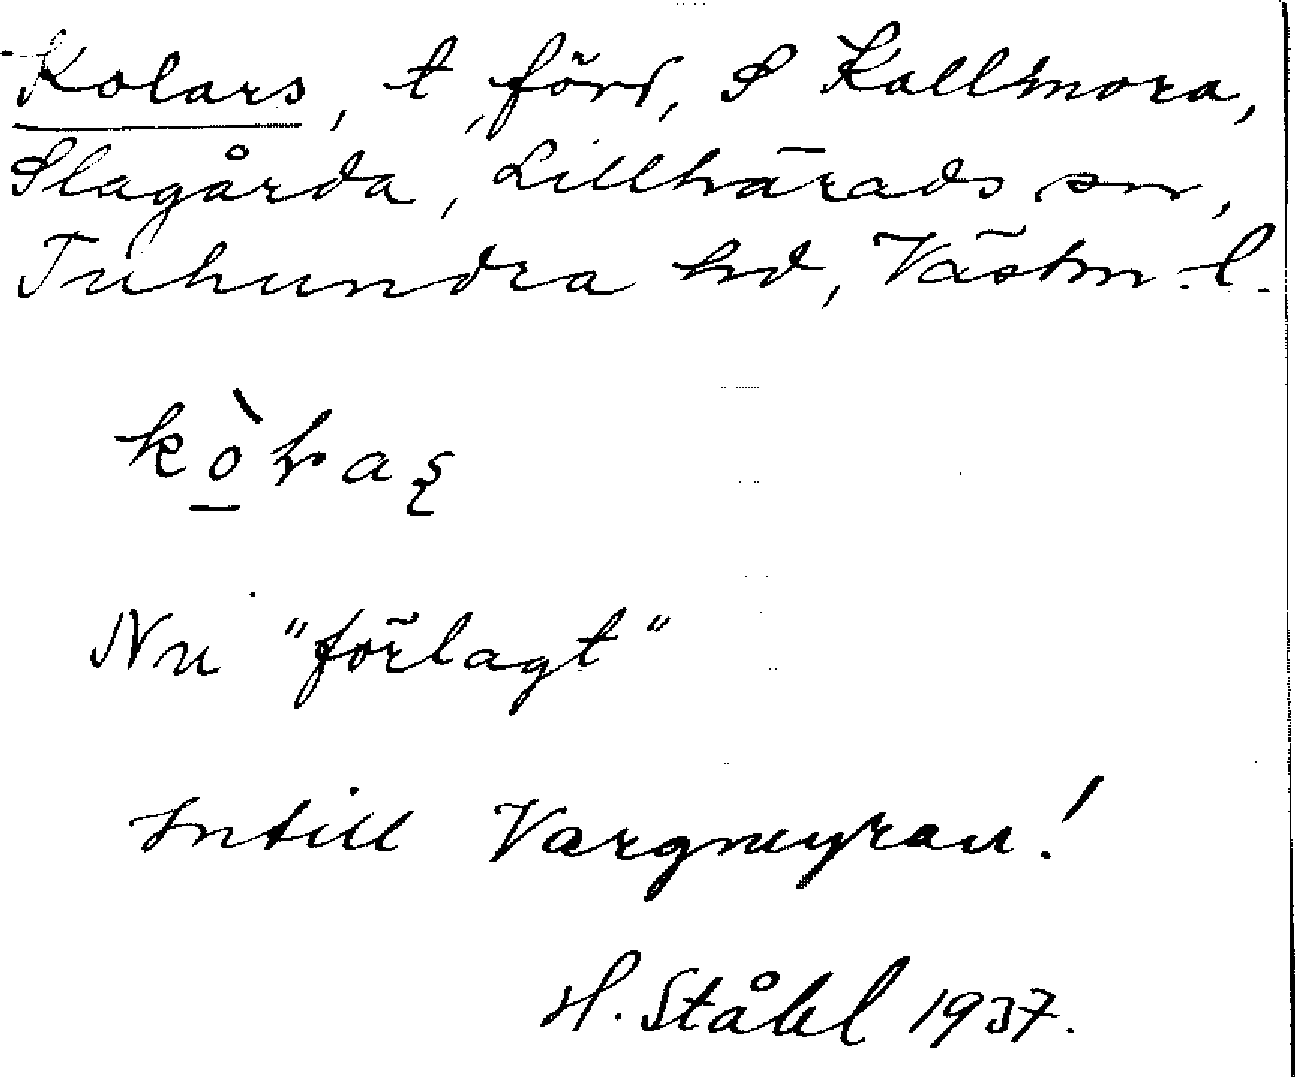 Kolars, t, förr, S Kallmora,
Slagårda, Lillhärads sn,
Tuhundra hd, Västm. l.
Nu "förlagt"
Intill Vargmyran!
H. Ståhl 1937.